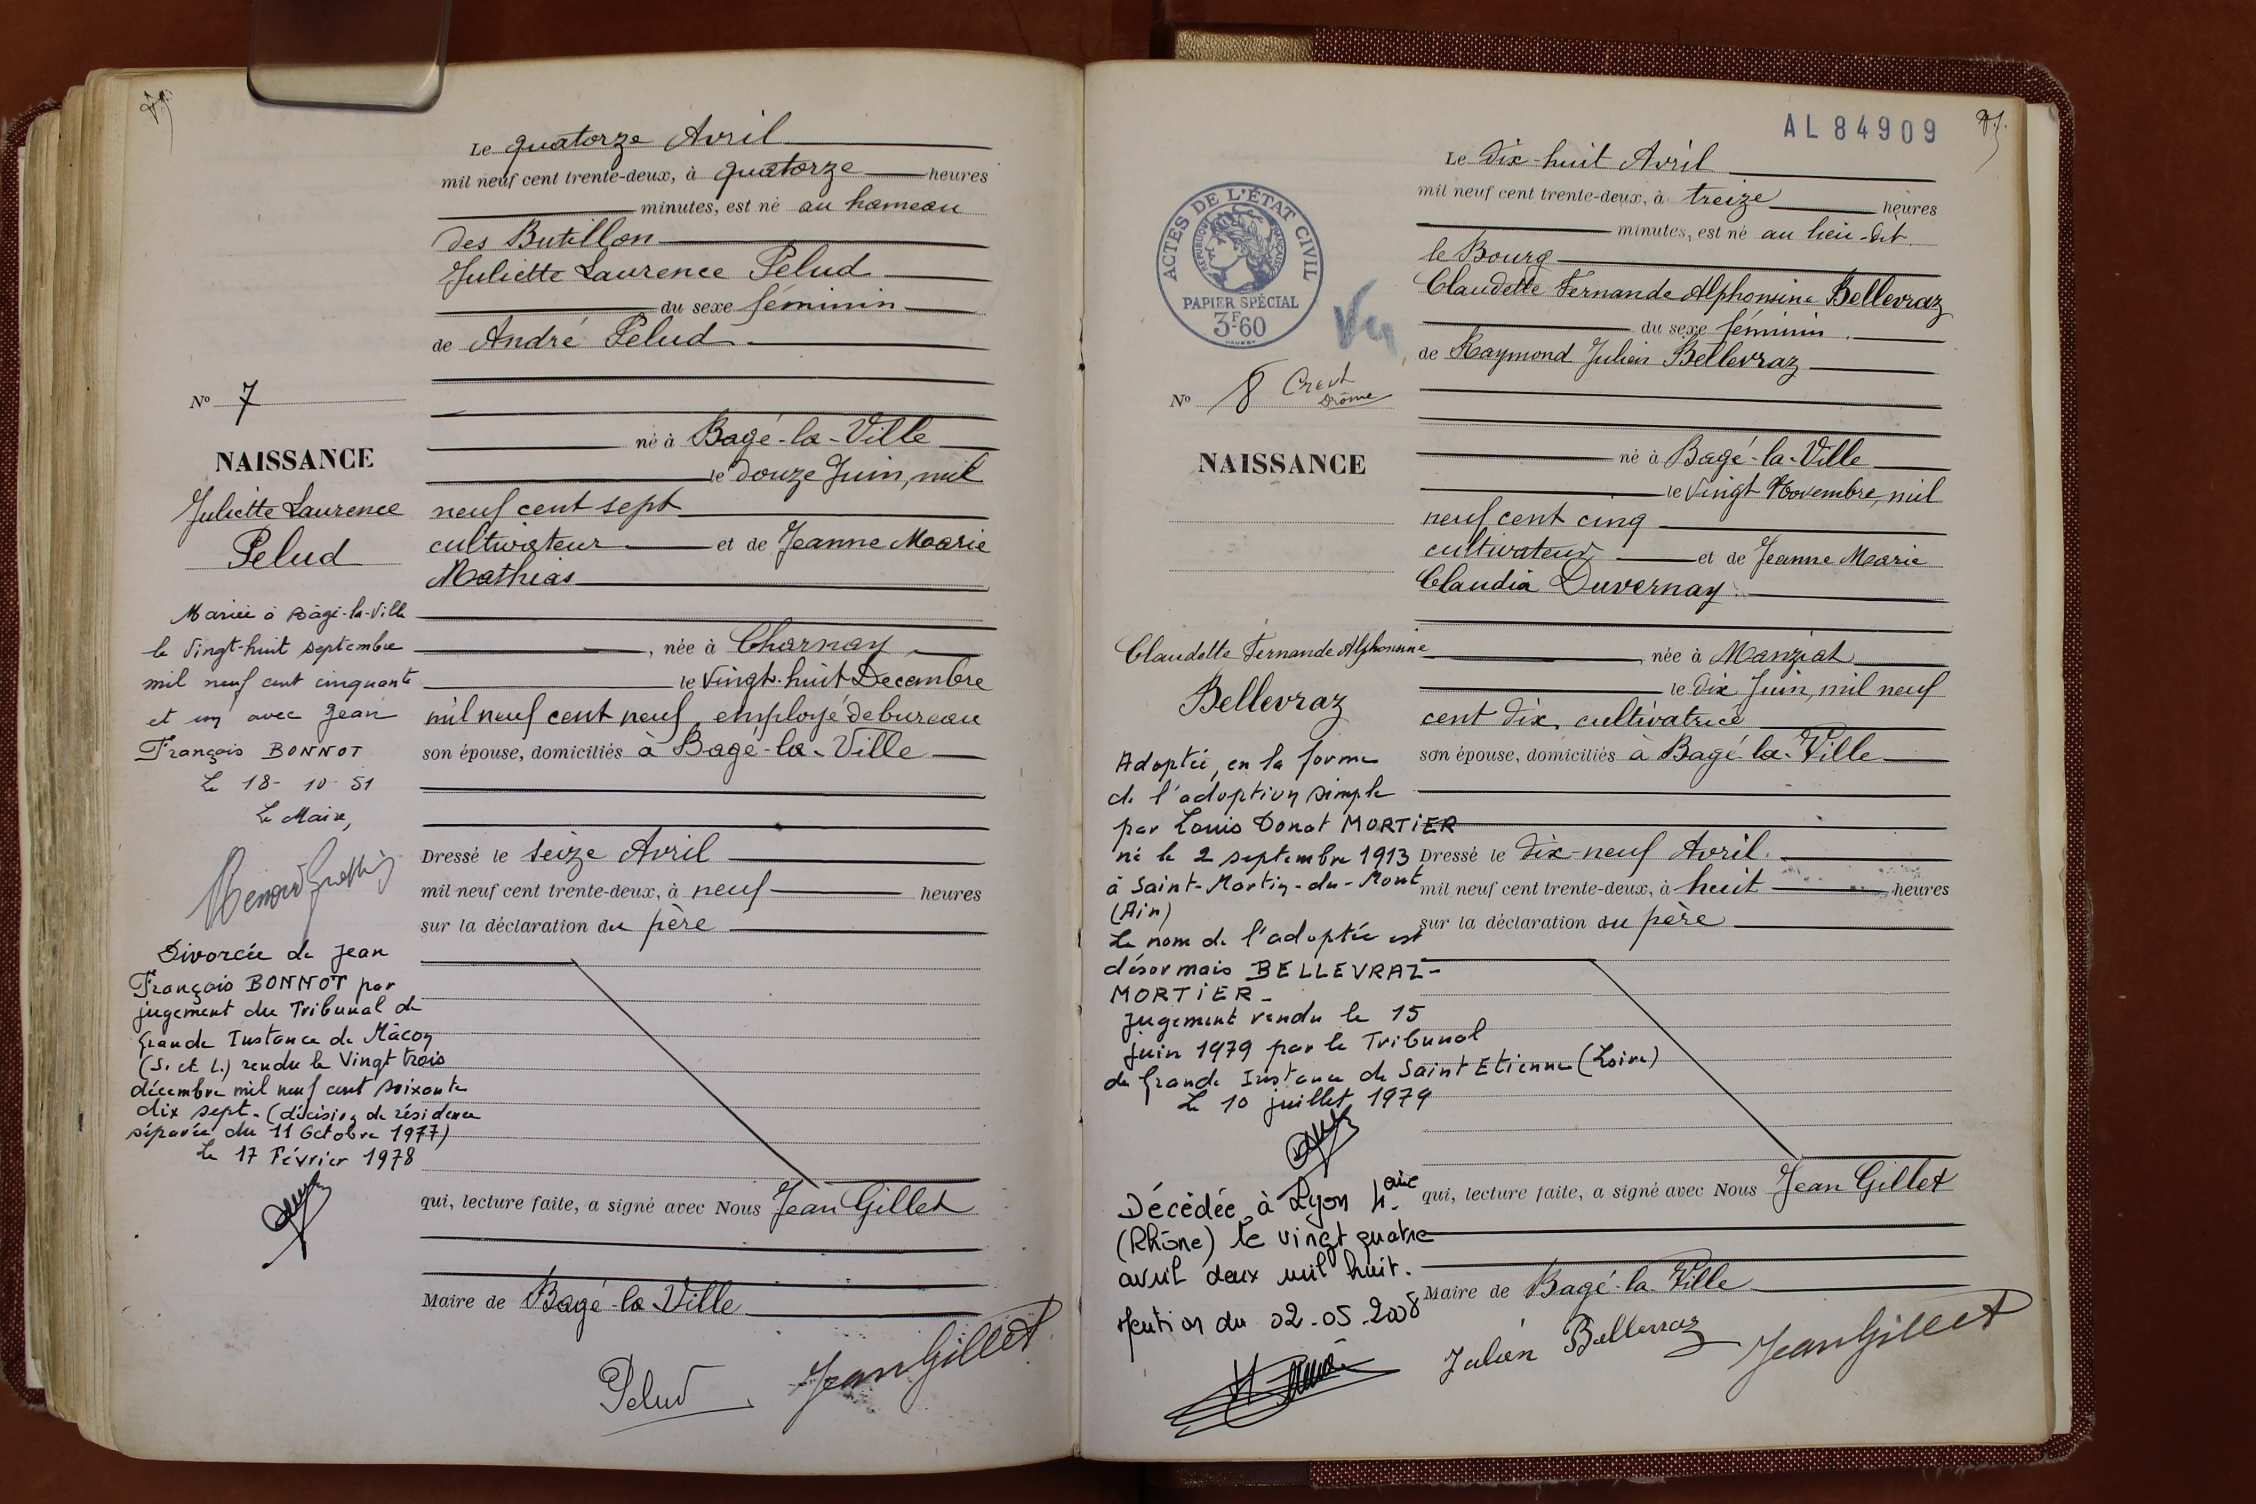 Le quatorze Avril
mil neuf cent trente-deux, à quatorze heures
minutes, est né au hameau
des Butillon
Juliette Laurence Pelud
du sexe féminin
de André Pelud
né à Bagé-la-Ville
le douze Juin, mil
neuf cent sept
cultivateur et de Jeanne Marie
Mathias
, née à Charnay
le Vingt-huit Décembre
mil neuf cent neuf, employé de bureau
son épouse, domiciliés à Bagé-la-Ville
Dressé le seize Avril
mil neuf cent trente-deux, à neuf heures
sur la déclaration du père
qui, lecture faite, a signé avec Nous Jean Gillet
Maire de Bagé-la-Ville
Pelud
Jean Gillet
No 7
NAISSANCE
Juliette Laurence
Pelud
Mariée à Bâgé-la-Ville
le vingt-huit septembre
mil neuf cent cinquante
et un avec Jean
François BONNOT
Le 18-10-51
Le Maire,
Divorcée de Jean
François BONNOT par
jugement du Tribunal de
Grande Instance de Mâcon
(S. et L.) rendu le Vingt trois
décembre mil neuf cent soixante
dix sept. (décision de résidence
séparée du 11 Octobre 1977)
Le 17 Février 1978
AL 84909
Le dix-huit Avril
mil neuf cent trente-deux, à treize heures
minutes, est né au lieu-dit
le Bourg
Claudette Fernande Alphonsine Bellevraz
du sexe féminin.
de Raymond Julien Bellevraz
né à Bagé-la-Ville
le vingt Novembre, mil
neuf cent cinq
cultivateur et de Jeanne Marie
Claudia Duvernay
née à Manziat
le dix Juin, mil neuf
cent dix, cultivatrice
son épouse, domiciliés à Bagé-la-Ville
Dressé le dix-neuf Avril.
mil neuf cent trente-deux, à huit heures
sur la déclaration du père
qui, lecture faite, a signé avec Nous Jean Gillet
Maire de Bagé-la-Ville
Julien Bellevraz
Jean Gillet
ACTES DE L'ÉTAT CIVIL
RÉPUBLIQUE FRANÇAISE
PAPIER SPÉCIAL
3F60
Vu
No 8 Crest
Drôme
NAISSANCE
Claudette Fernande Alphonsine
Bellevraz
Adoptée, en la forme
de l'adoption simple
par Louis Donat MORTIER
né le 2 septembre 1913
à Saint-Martin-du-Mont
(Ain)
Le nom de l'adoptée est
désormais BELLEVRAZ-
MORTIER-
Jugement rendu le 15
juin 1979 par le Tribunal
de Grande Instance de Saint Etienne (Loire)
Le 10 juillet 1979
Décédée à Lyon 4.
(Rhône) le vingt quatre
avril deux mil huit.
Mention du 02-05-2008